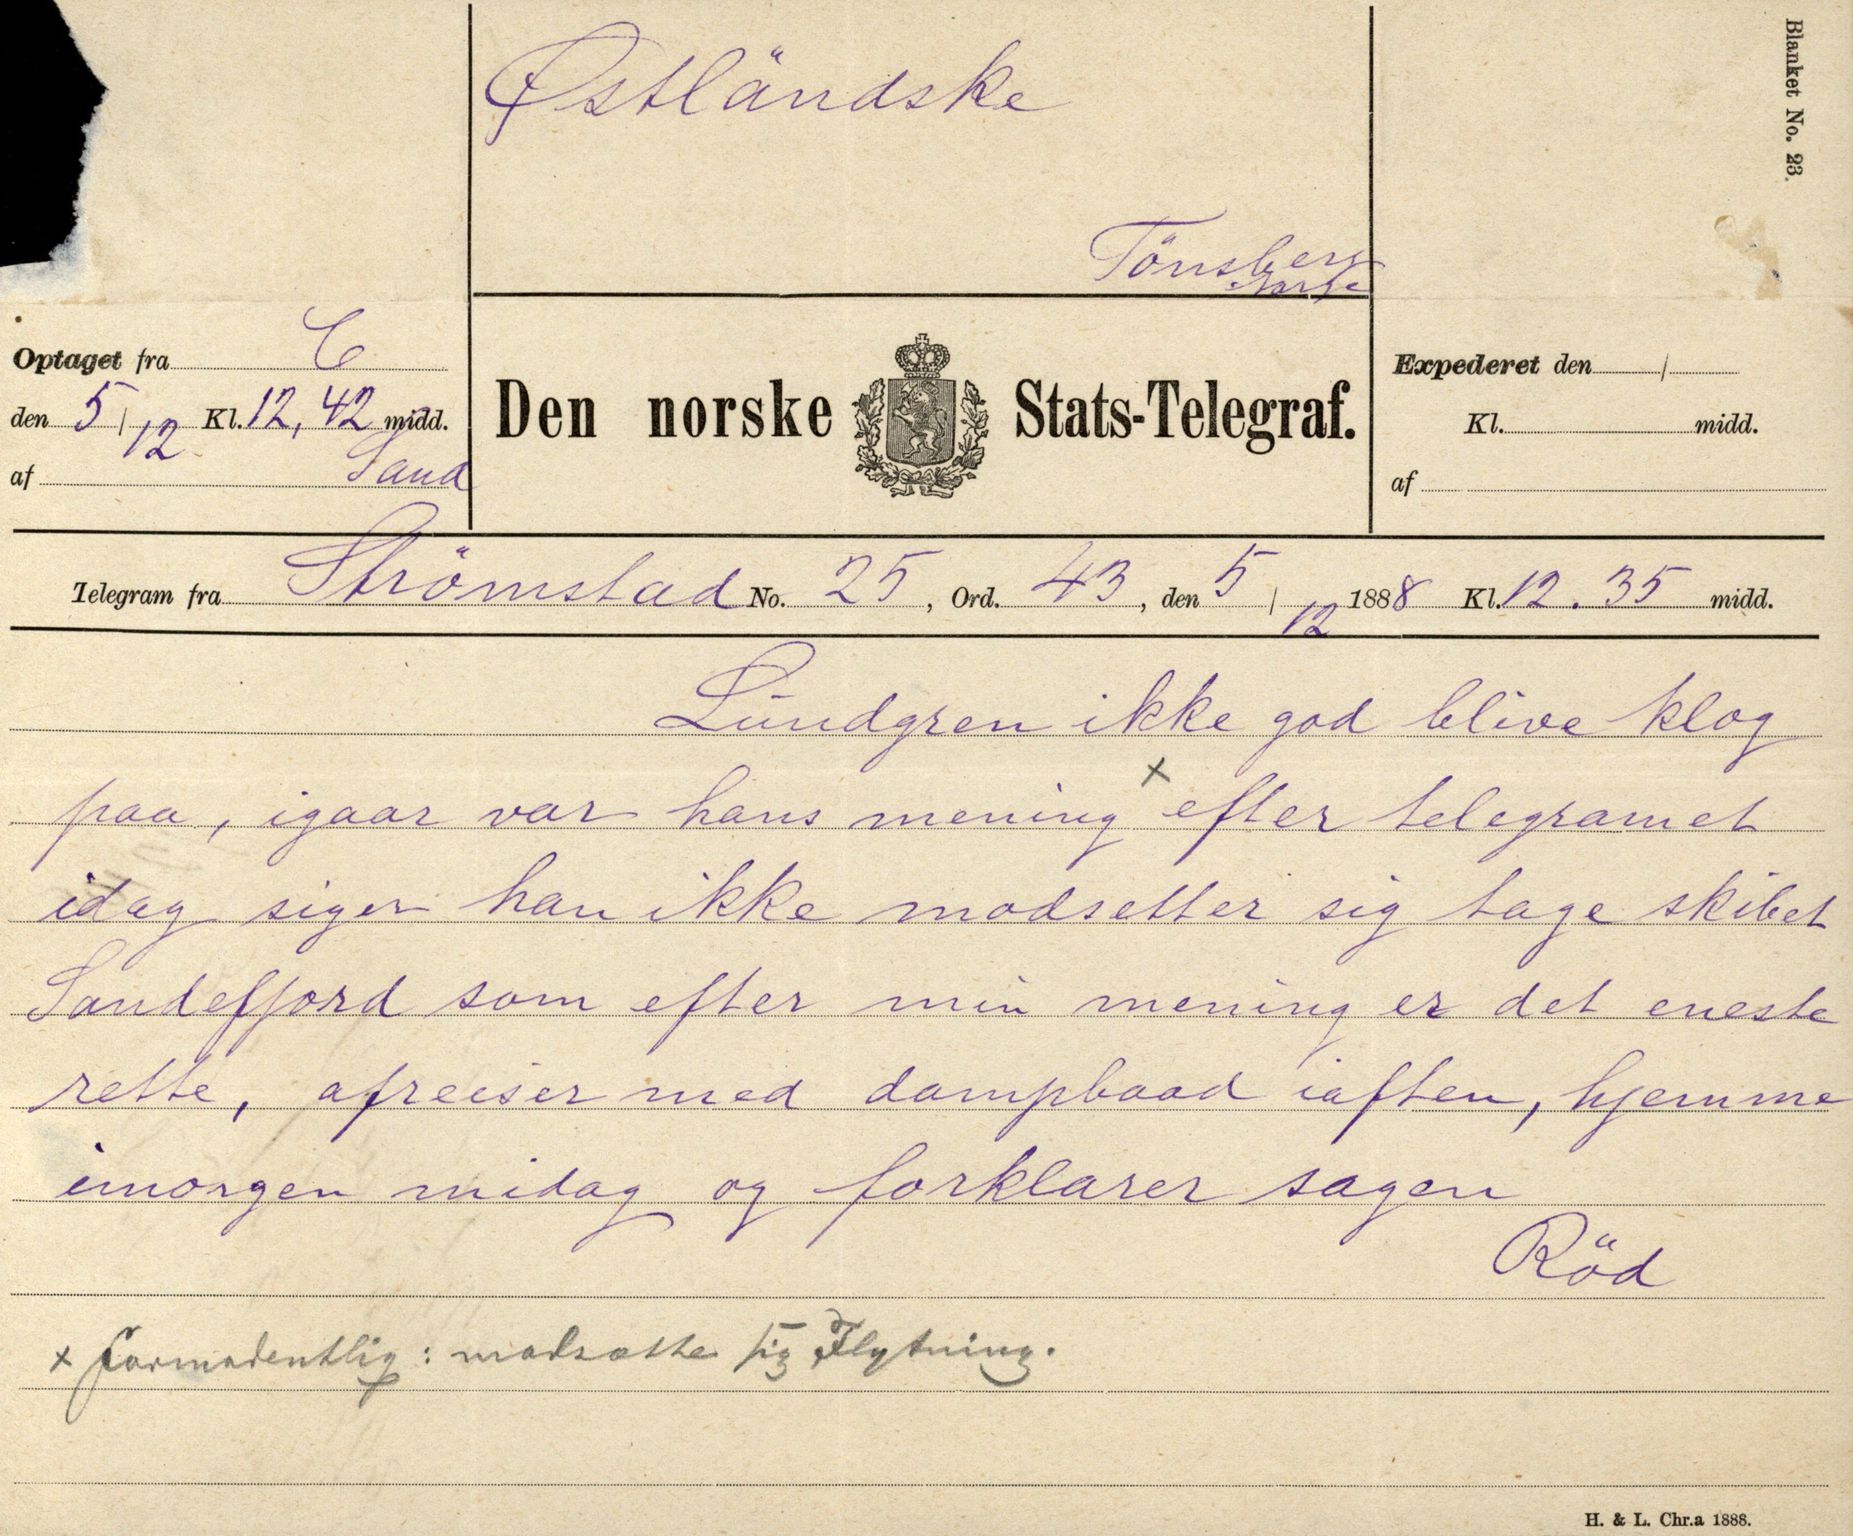 Blanket No. 23.
Østländske
Tönsberg
Norge
Optaget fra C
den 5/12 Kl. 12,42 midd.
af Sand
Den norske Stats-Telegraf.
Expederet den /
Kl. midd.
af
Telegram fra Strömstad No. 25, Ord. 43, den 5/12 1888 Kl. 12.35 midd.
Lundgren ikke god blive klog
paa, igaar var hans mening x efter telegramet
idag siger han ikke modsetter sig tage skibet
Sandefjord som efter min mening er det eneste
rette, afreiser med dampbaad iaften, hjemme
imorgen midag og forklarer sagen
Röd
x formodentlig: modsætte sig Flytning.
H. & L. Chr.a 1888.